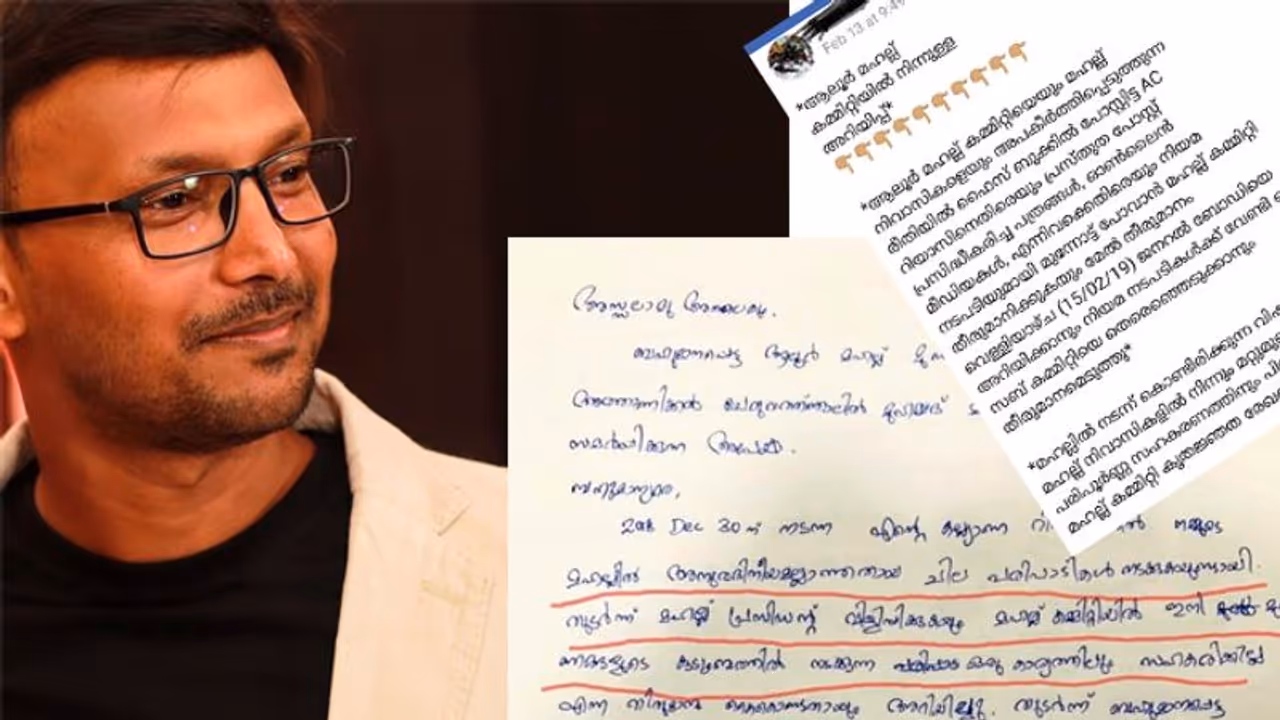 Feb 13 at 9:49
*ആലൂർ മഹല്ല്
കമ്മിറ്റിയിൽ നിന്നുള്ള
അറിയിപ്പ്*
*ആലൂർ മഹല്ല് കമ്മിറ്റിയെയും മഹല്ല്
നിവാസികളെയും അപകീർത്തിപ്പെടുത്തുന്ന
രീതിയിൽ ഫൈസ് ബുക്കിൽ പോസ്റ്റിട്ട AC
റിയാസിനെതിരെയും പ്രസ്തുത പോസ്റ്റ്
പ്രസിദ്ധീകരിച്ച പത്രങ്ങൾ, ഓൺലൈൻ
മീഡിയകൾ, എന്നിവക്കെതിരെയും നിയമ
നടപടിയുമായി മുന്നോട്ട് പോവാൻ മഹല്ല് കമ്മിറ്റി
തീരുമാനിക്കുകയും മേൽ തീരുമാനം
വെള്ളിയാഴ്ച (15/02/19) ജനറൽ ബോഡിയെ
അറിയിക്കാനും നിയമ നടപടികൾക്ക് വേണ്ടി
സബ് കമ്മിറ്റിയെ തെരെഞ്ഞെടുക്കാനും
തീരുമാനമെടുത്തു*
*മഹല്ലിൽ നടന്ന് കൊണ്ടിരിക്കുന്ന
മഹല്ല് നിവാസികളിൽ നിന്നും
പരിപൂർണ്ണ സഹകരണത്തിനും
മഹല്ല് കമ്മിറ്റി കൃതജ്ഞത
അസ്സലാമു അലൈകും.
ബഹുമാനപ്പെട്ട ആലൂർ മഹല്ല്
സമർപ്പിക്കുന്ന അപേക്ഷ.
ബഹുമാന്യരെ,
2018 Dec 30ന് നടന്ന എന്റെ കല്യാണ നമ്മുടെ
മഹല്ലിൽ അനുവദിനീയമല്ലാത്തതായ ചില പരിപാടികൾ നടക്കുകയുണ്ടായി.
തുടർന്ന് മഹല്ല് പ്രസിഡന്റ് വിളിപ്പിക്കുകയും മഹല്ല് കമ്മിറ്റിയിൽ ഇനി
ഞങ്ങളുടെ കുടുംബത്തിൽ നടക്കുന്ന ഒരു കാര്യത്തിലും സഹകരിക്കില്ല
എന്ന തീരുമാനം കൈകൊണ്ടതായും അറിയിച്ചു. തുടർന്ന് ബഹുമാനപ്പെട്ട